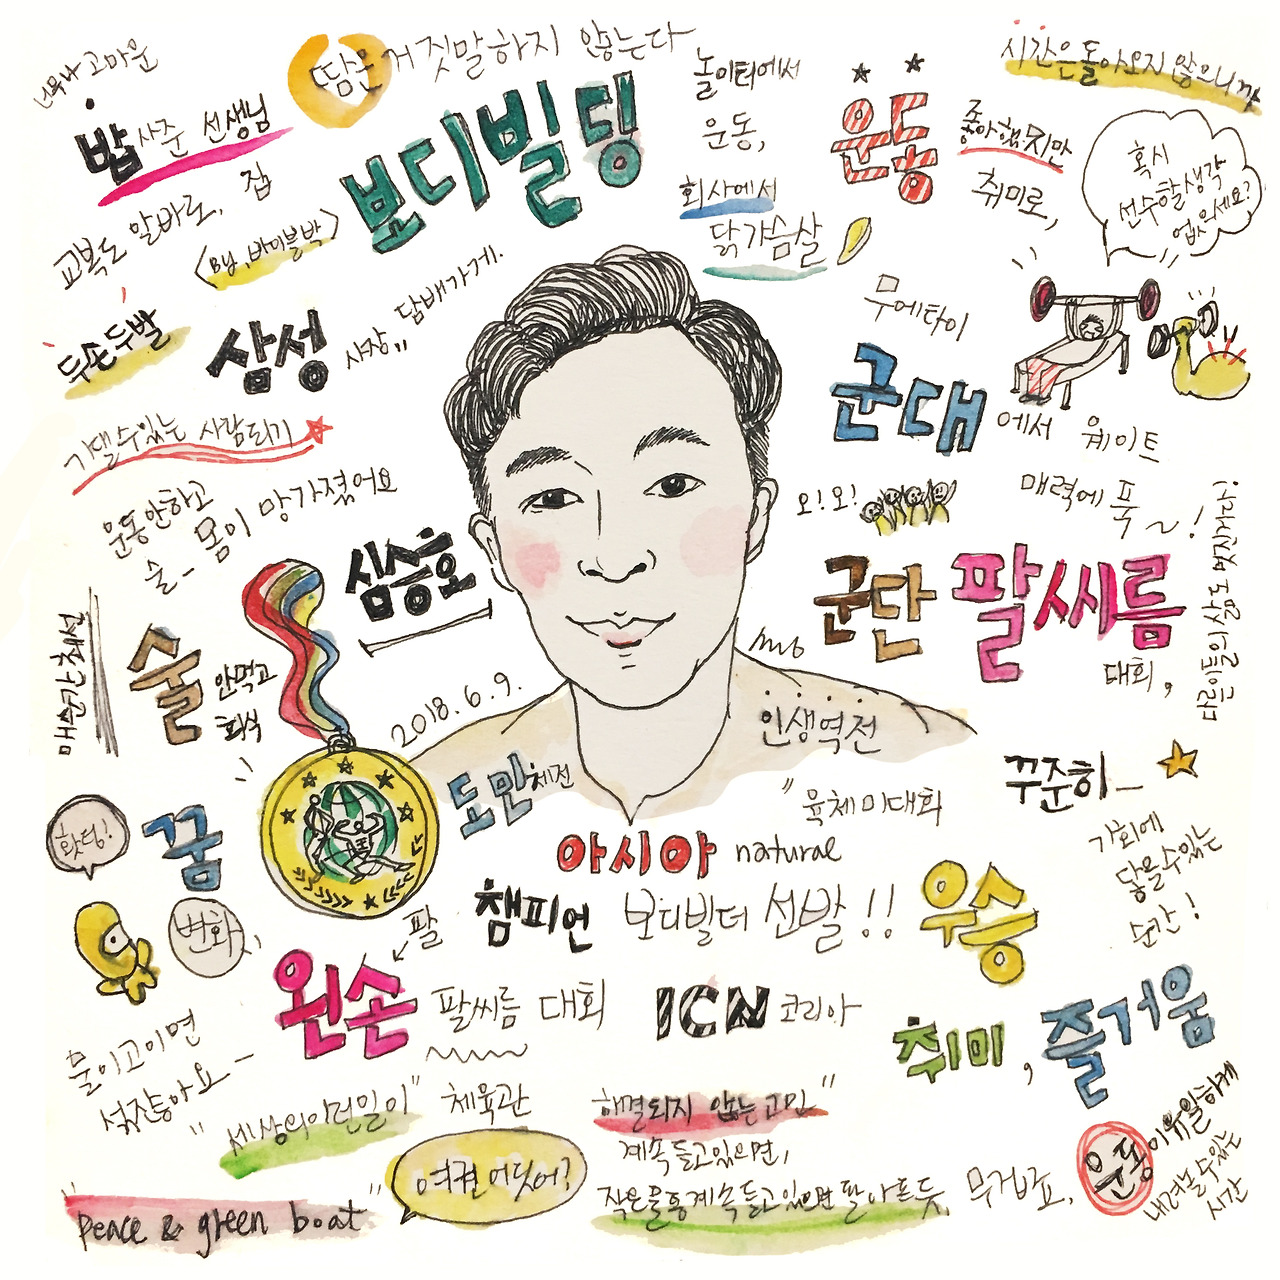 너무나 고마운
밥 사준 선생님
교복도 알바로, 집
<By, 바이블 박>
두손두발
땀은 거짓말하지 않는다
보디빌딩
삼성 사장,, 담배가게.
기댈수있는 사람되기
운동안하고
술- 몸이 망가졌어요
심승호
놀이터에서
운동,
회사에서
닭가슴살
운동
좋아했지만
취미로,
시간은 돌아오지 않으니까
혹시
선수할생각
없으세요?
무에타이
군대
에서 웨이트
매력에 푹~!
오!오!
군단 팔씨름
대회,
다른이들의 삶도 멋진거다!
매순간 최선
술 안먹고
회식
2018.6.9.
도민체전
인생역전
"육체미대회
꾸준히_
기회에
닿을수있는
순간!
아시아 natural
챔피언 보디빌더 선발!!
우승
홧팅!
꿈
변화
팔
왼손 팔씨름 대회
ICN 코리아
취미, 즐거움
물이고이면
썩잖아요-
"세상의 어떤일이" 체육관
해결되지 않는 고민"
계속 들고있으면,
작은물흥계속들고있으면 팔 아프듯
여권 어딧어?
"peace & green boat"
무겁죠,
운동이유일하게
내려놀수있는
시간